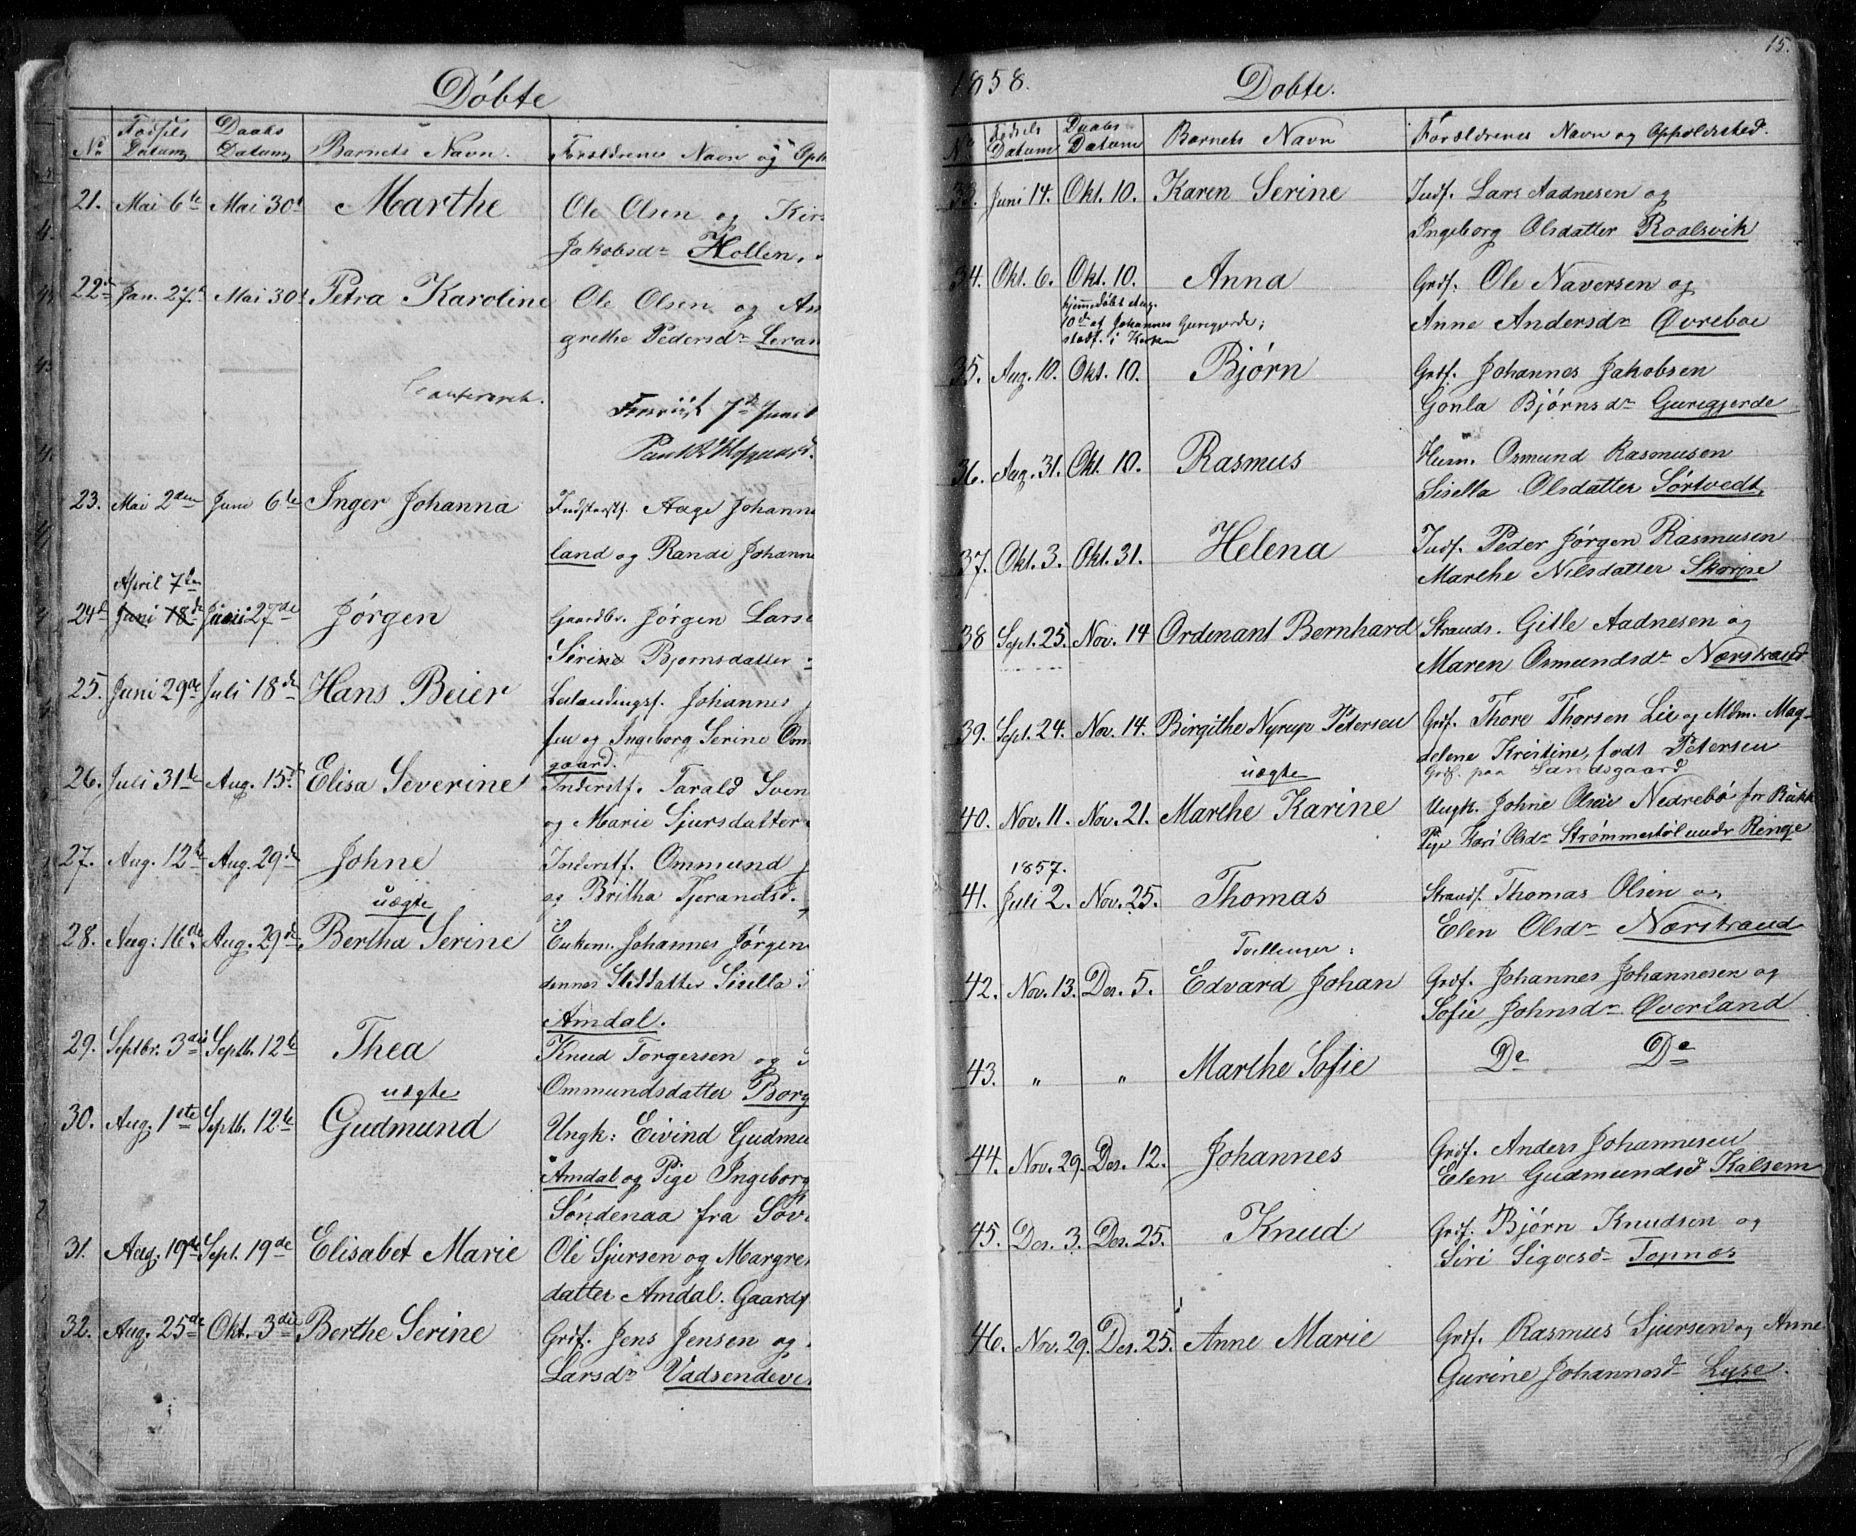 Döbte
No Fødsels Datum Daabs Datum Barnets Navn. Forældrenes Navn og Oph
21. Mai 6te Mai 30t Marthe Ole Olsen og Kirs
Jakobsdr Hollen,
22d Jan. 27d Mai 30t Petra Karoline Ole Olsen og An
grethe Pedersdr Leran
Confereret. 7de Juni
23. Mai 2den Juni 6te Inger Johanna Indsterstf. Aage Johanne
land og Randi Johanne
April 7de
24d Juni 18de Juni 27de Jørgen Gaardbr. Jørgen Lars
Serine Bjørnsdatter
25. Juni 29de Juli 18de Hans Beier Johannes
sen og Ingeborg Serine Om
gaard.
26. Juli 31te Aug. 15d Elisa Severine Inderstf. Tarald Sven
og Marie Sjursdatter
27. Aug. 12te Aug. 29de Johne Inderstf. Ommund
uægte og Britha Tjerandsd.
28. Aug. 16de Aug. 29de Bertha Serine Enkem. Johannes Jørgen
dennes Steddatter Sisella
Amdal.
29. Septbr. 3die Septb. 12te Thea Knud Torgersen og
uægte Ommundsdatter Borg
30. Aug. 1ste Septb. 12te Gudmund Ungk: Eivind Gudmu
Amdal og Pige Ingeborg
Søndenaa fra Sov
31. Aug. 19de Sept. 19de Elisabet Marie Ole Sjursen og Margre
datter Amdal. Gaardf
32. Aug. 25de Okt. 3die Berthe Serine Grdf. Jens Jensen og
Larsdr Vadsendevi
15.
1858. Dobte.
No Fødsels Datum Daabs Datum Barnets Navn Forældrenes Navn og Opholdsted.
33. Juni 14. Okt. 10. Karen Serine Indf. Lars Aadnesen og
Ingeborg Olsdatter Roalsvik
34. Okt. 6. Okt. 10. Anna Grdf. Ole Naversen og
Anne Andersdr Øvreboe
hjemmedöbt Aug.
10de af Johannes Guregjerde;
stadf. i Kirken
35. Aug. 10. Okt. 10. Bjørn Grdf. Johannes Jakobsen
Gonla Bjørnsdr Guregjerde
36. Aug. 31. Okt. 10. Rasmus Husm. Osmund Rasmusen
Sisella Olsdatter Sørtvedt
37. Okt. 3. Okt. 31. Helena Indf. Peder Jørgen Rasmusen
Marthe Nilsdatter Skorpe
38 Sept. 25. Nov. 14 Ordenant Bernhard Strands. Gitle Aadnesen og
Maren Osmundsdr Nærstrand
39. Sept. 24. Nov. 14. Birgithe Nyrup Petersen Grdf. Thore Thorsen Lie og Mdm. Mag-
delene Kristine, født Petersen
Grdf. paa Sandsgaard
uægte
40. Nov. 11. Nov. 21. Marthe Karine Ungk. Johne Olsen Nedrebö
Pige Kari Olsdr Strømmestøl undr Ringe
1857.
41. Juli 2. Nov. 25. Thomas Strandf. Thomas Olsen og
Elen Olsdr Nærstrand
Tvillinger:
42. Nov. 13. Des. 5. Edvard Johan Grdf. Johannes Johannesen og
Sofie Johnsdr Øverland
43. " " Marthe Sofie De De
44. Nov. 29. Des. 12. Johannes Grdf. Anders Johannesen
Elen Gudmundsd Kalsem
45. Des. 3. Des. 25. Knud Grdf. Bjørn Knudsen og
Siri Sigvesd Topnæs
46. Nov. 29. Des. 25. Anne Marie Grdf. Rasmus Sjursen og Anne
Gurine Johannesd Lyse.